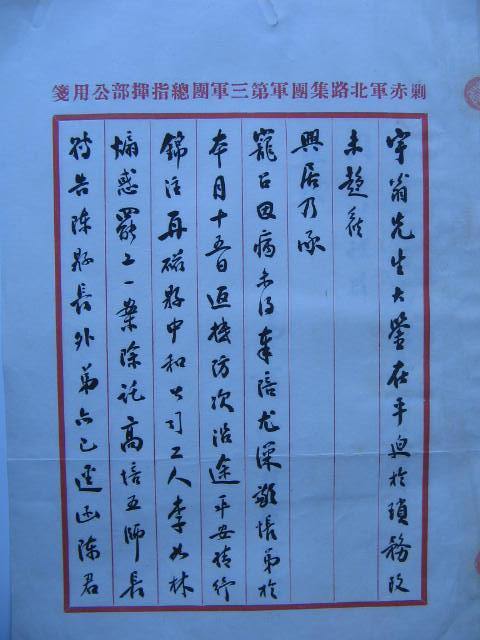 剿赤軍北路集團軍第三軍團總指揮部公用箋
宇翁先生大鑒在平迫於瑣務致
未趨候
興居乃承
寵召因病未得奉陪尤深歉悵弟於
本月十五日返抵防次沿途平安請紓
錦注再磁縣中和公司工人李如林
煽惑罷工一案除託高培五師長
轉告陳縣長外弟亦已逕函陳君